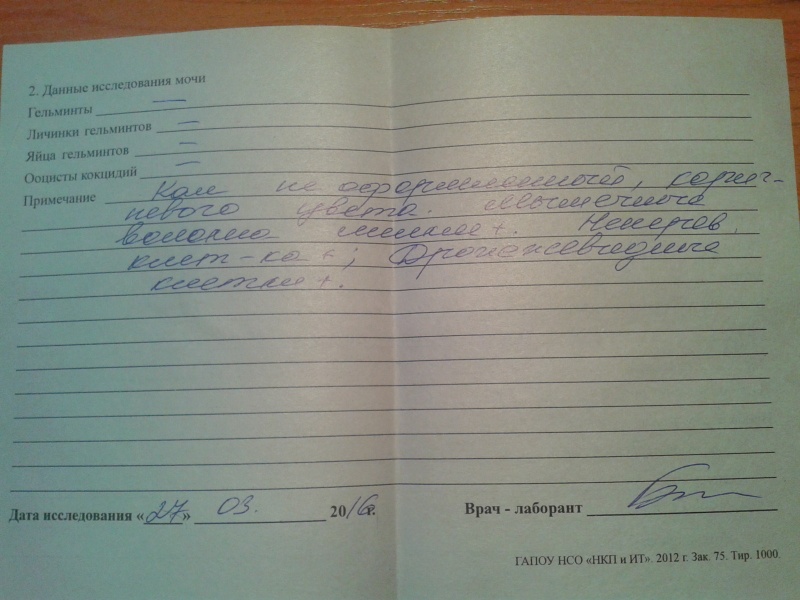 2. Данные исследования мочи
Гельминты —
Личинки гельминтов —
Яйца гельминтов —
Ооцисты кокцидий —
Примечание Кал не оформленный, корич-
невого цвета. Мышечные
волокна +. Неперев.
клет-ка +; Дрожжевидные
клетки +.
Дата исследования «27» 03. 2016г.
Врач - лаборант
ГАПОУ НСО «НКП и ИТ». 2012 г. Зак. 75. Тир. 1000.